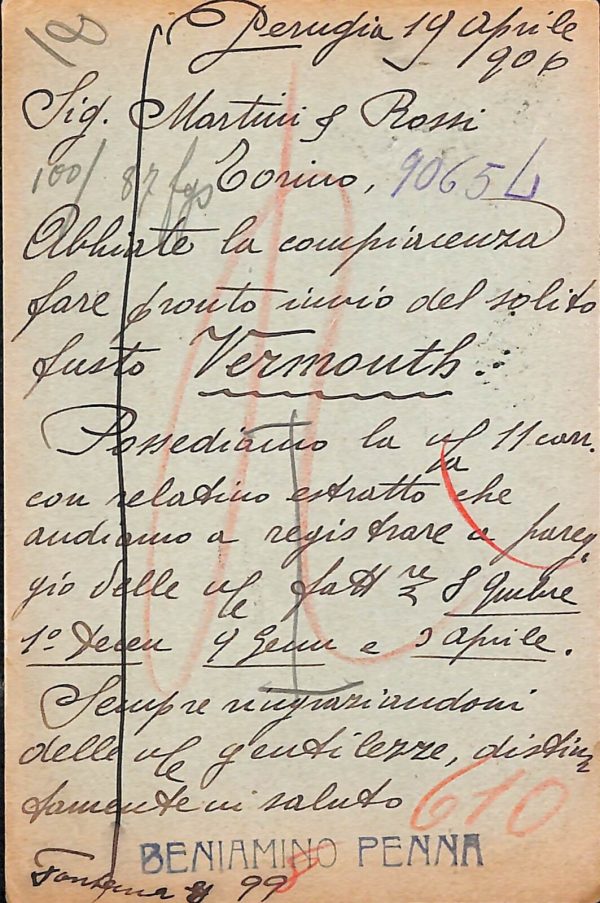 18
Perugia 19 Aprile
906
Sig. Martini & Rossi
100/ 87 fgs Torino, 9065 L
Abbiate la compiacenza
fare pronto invio del solito
fusto Vermouth.
Possediamo la 11 corr.
con relativo estratto che
andiamo a registrare a pareg
gio delle fatt re 8 9mbre
1º Decem 9 Genn e 3 aprile.
Sempre ringraziandovi
delle gentilezze, distin
tamente vi saluto
610
BENIAMINO PENNA
99